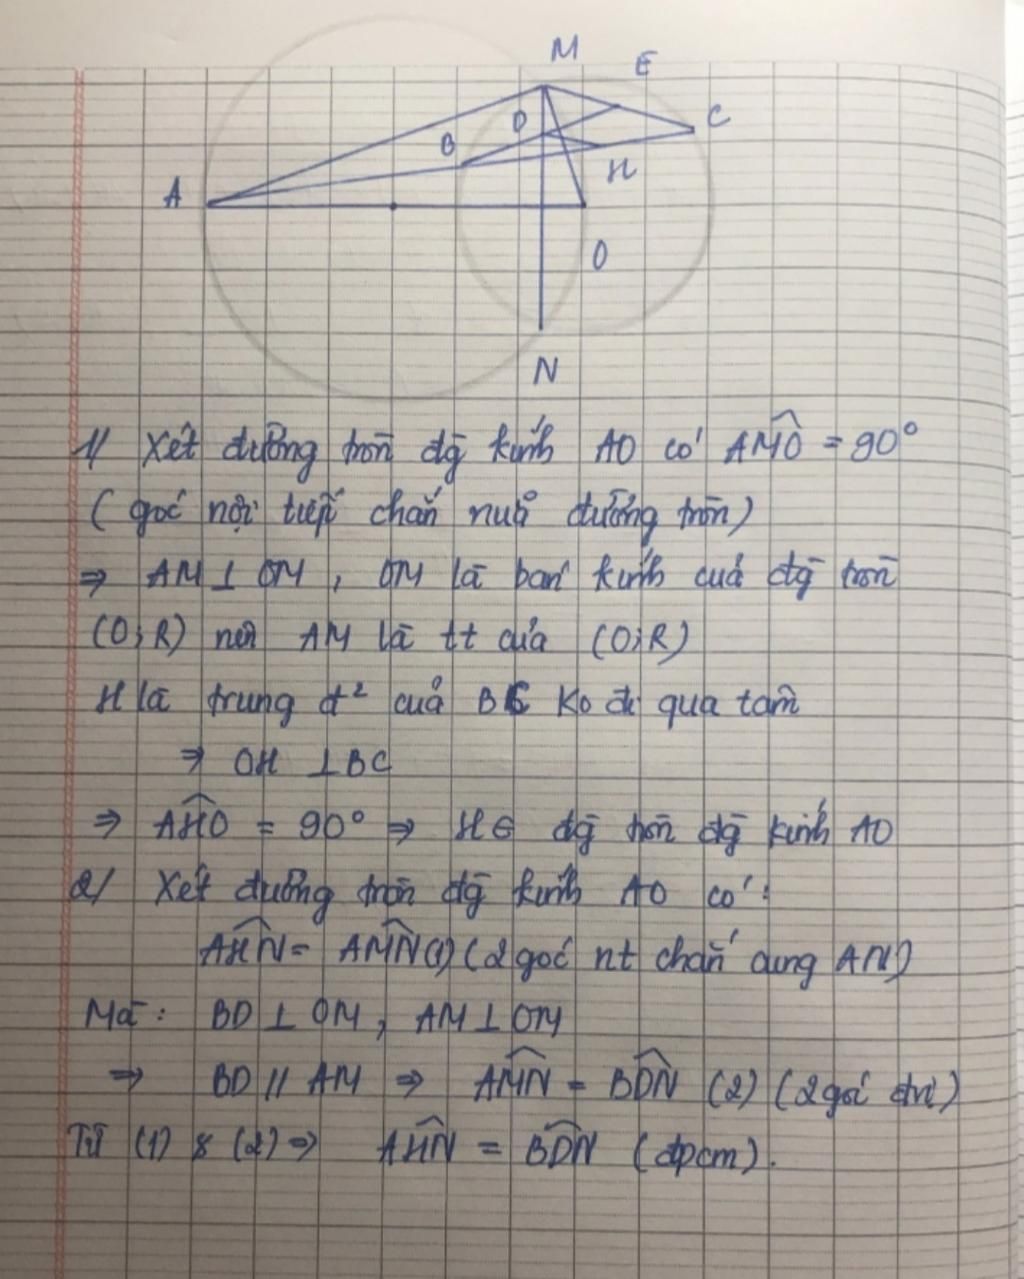 M
E
D
C
B
H
A
O
N
1) Xét đường tròn đg̃ kính AO có AM̂O = 90°
( góc nội tiếp chắn nửa đường tròn)
⇒ AM ⊥ OM , OM là bán kính của đg̃ tròn
(O;R) nên AM là tt của (O;R)
H là trung đ² của BC Ko đi qua tâm
⇒ OH ⊥ BC
⇒ AĤO = 90° ⇒ H ∈ đg̃ tròn đg̃ kính AO
2) Xét đường tròn đg̃ kính AO có :
AĤN = AM̂N (1) (2 góc nt chắn cung AN)
Mà : BD ⊥ OM , AM ⊥ OM
⇒ BD // AM ⇒ AM̂N = BD̂N (2) (2 góc đvị)
Từ (1) & (2) ⇒ AĤN = BD̂N (đpcm).